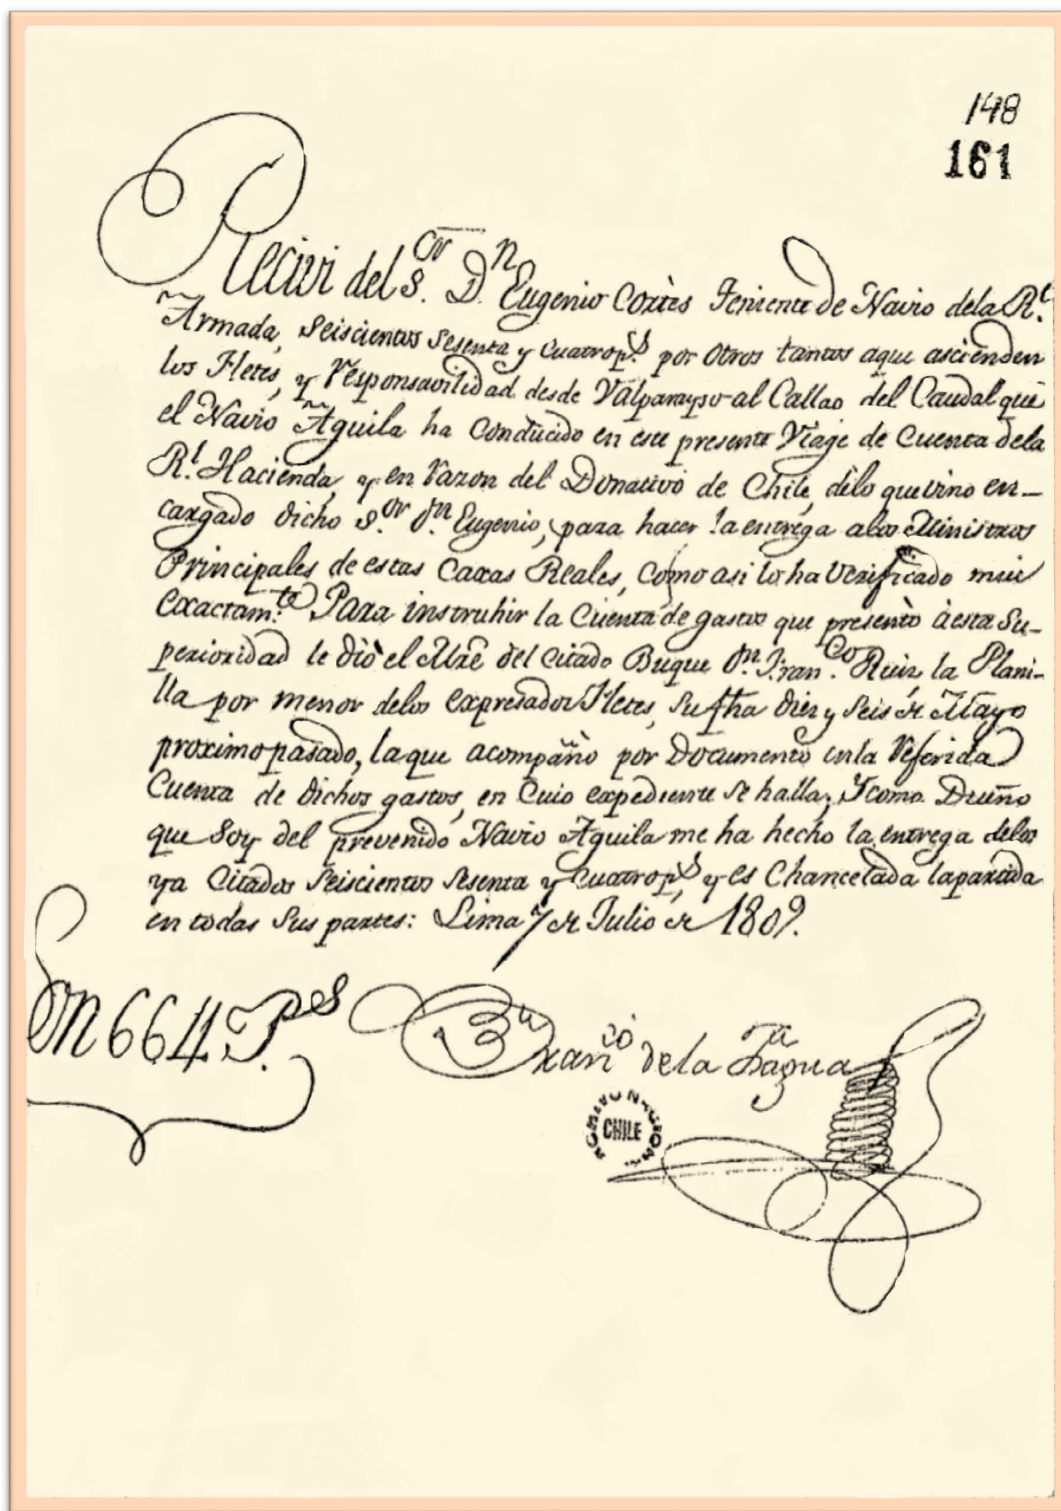 148
161
Recivi del S.or D.n Eugenio Cortès Teniente de Navio dela R.l
Armada, Seiscientos Sesenta y Cuatro p.s por otros tantos aque ascienden
los Fletes, y Responsavilidad desde Valparayso al Callao del Caudal que
el Navio Aguila ha Conducido en este presente Viage de Cuenta dela
R.l Hacienda, y en razon del Donativo de Chile, delo que vino en-
cargado dicho S.or D.n Eugenio, para hacer la entrega alos Ministros
Principales de estas Caxas Reales, como asi lo ha Verificado mui
exactam.te Para instruhir la Cuenta de gastos que presentò à esta Su-
perioridad le diò el Mře del citado Buque D.n Fran.co Ruiz, la Plani-
lla por menor delos expresados Fletes, su fha Diez y Seis de Mayo
proximo pasado, la que acompaño por Documento enla Referida
Cuenta de dichos gastos, en Cuio expediente se halla; Y como Dueño
que Soy del prevenido Navio Aguila me ha hecho la entrega delos
ya Citados Seiscientos Sesenta y Cuatro p.s, y es Chancelada la partida
en todas Sus partes: Lima 7 de Julio de 1809.
Son 664 P.s
Fran.co dela
ARCHIVO NACIONAL
CHILE